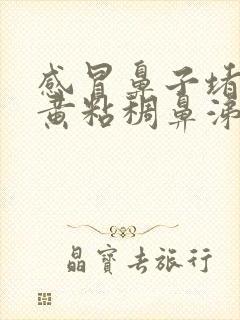 感冒鼻子堵
黄粘稠鼻涕
晶寳去旅行